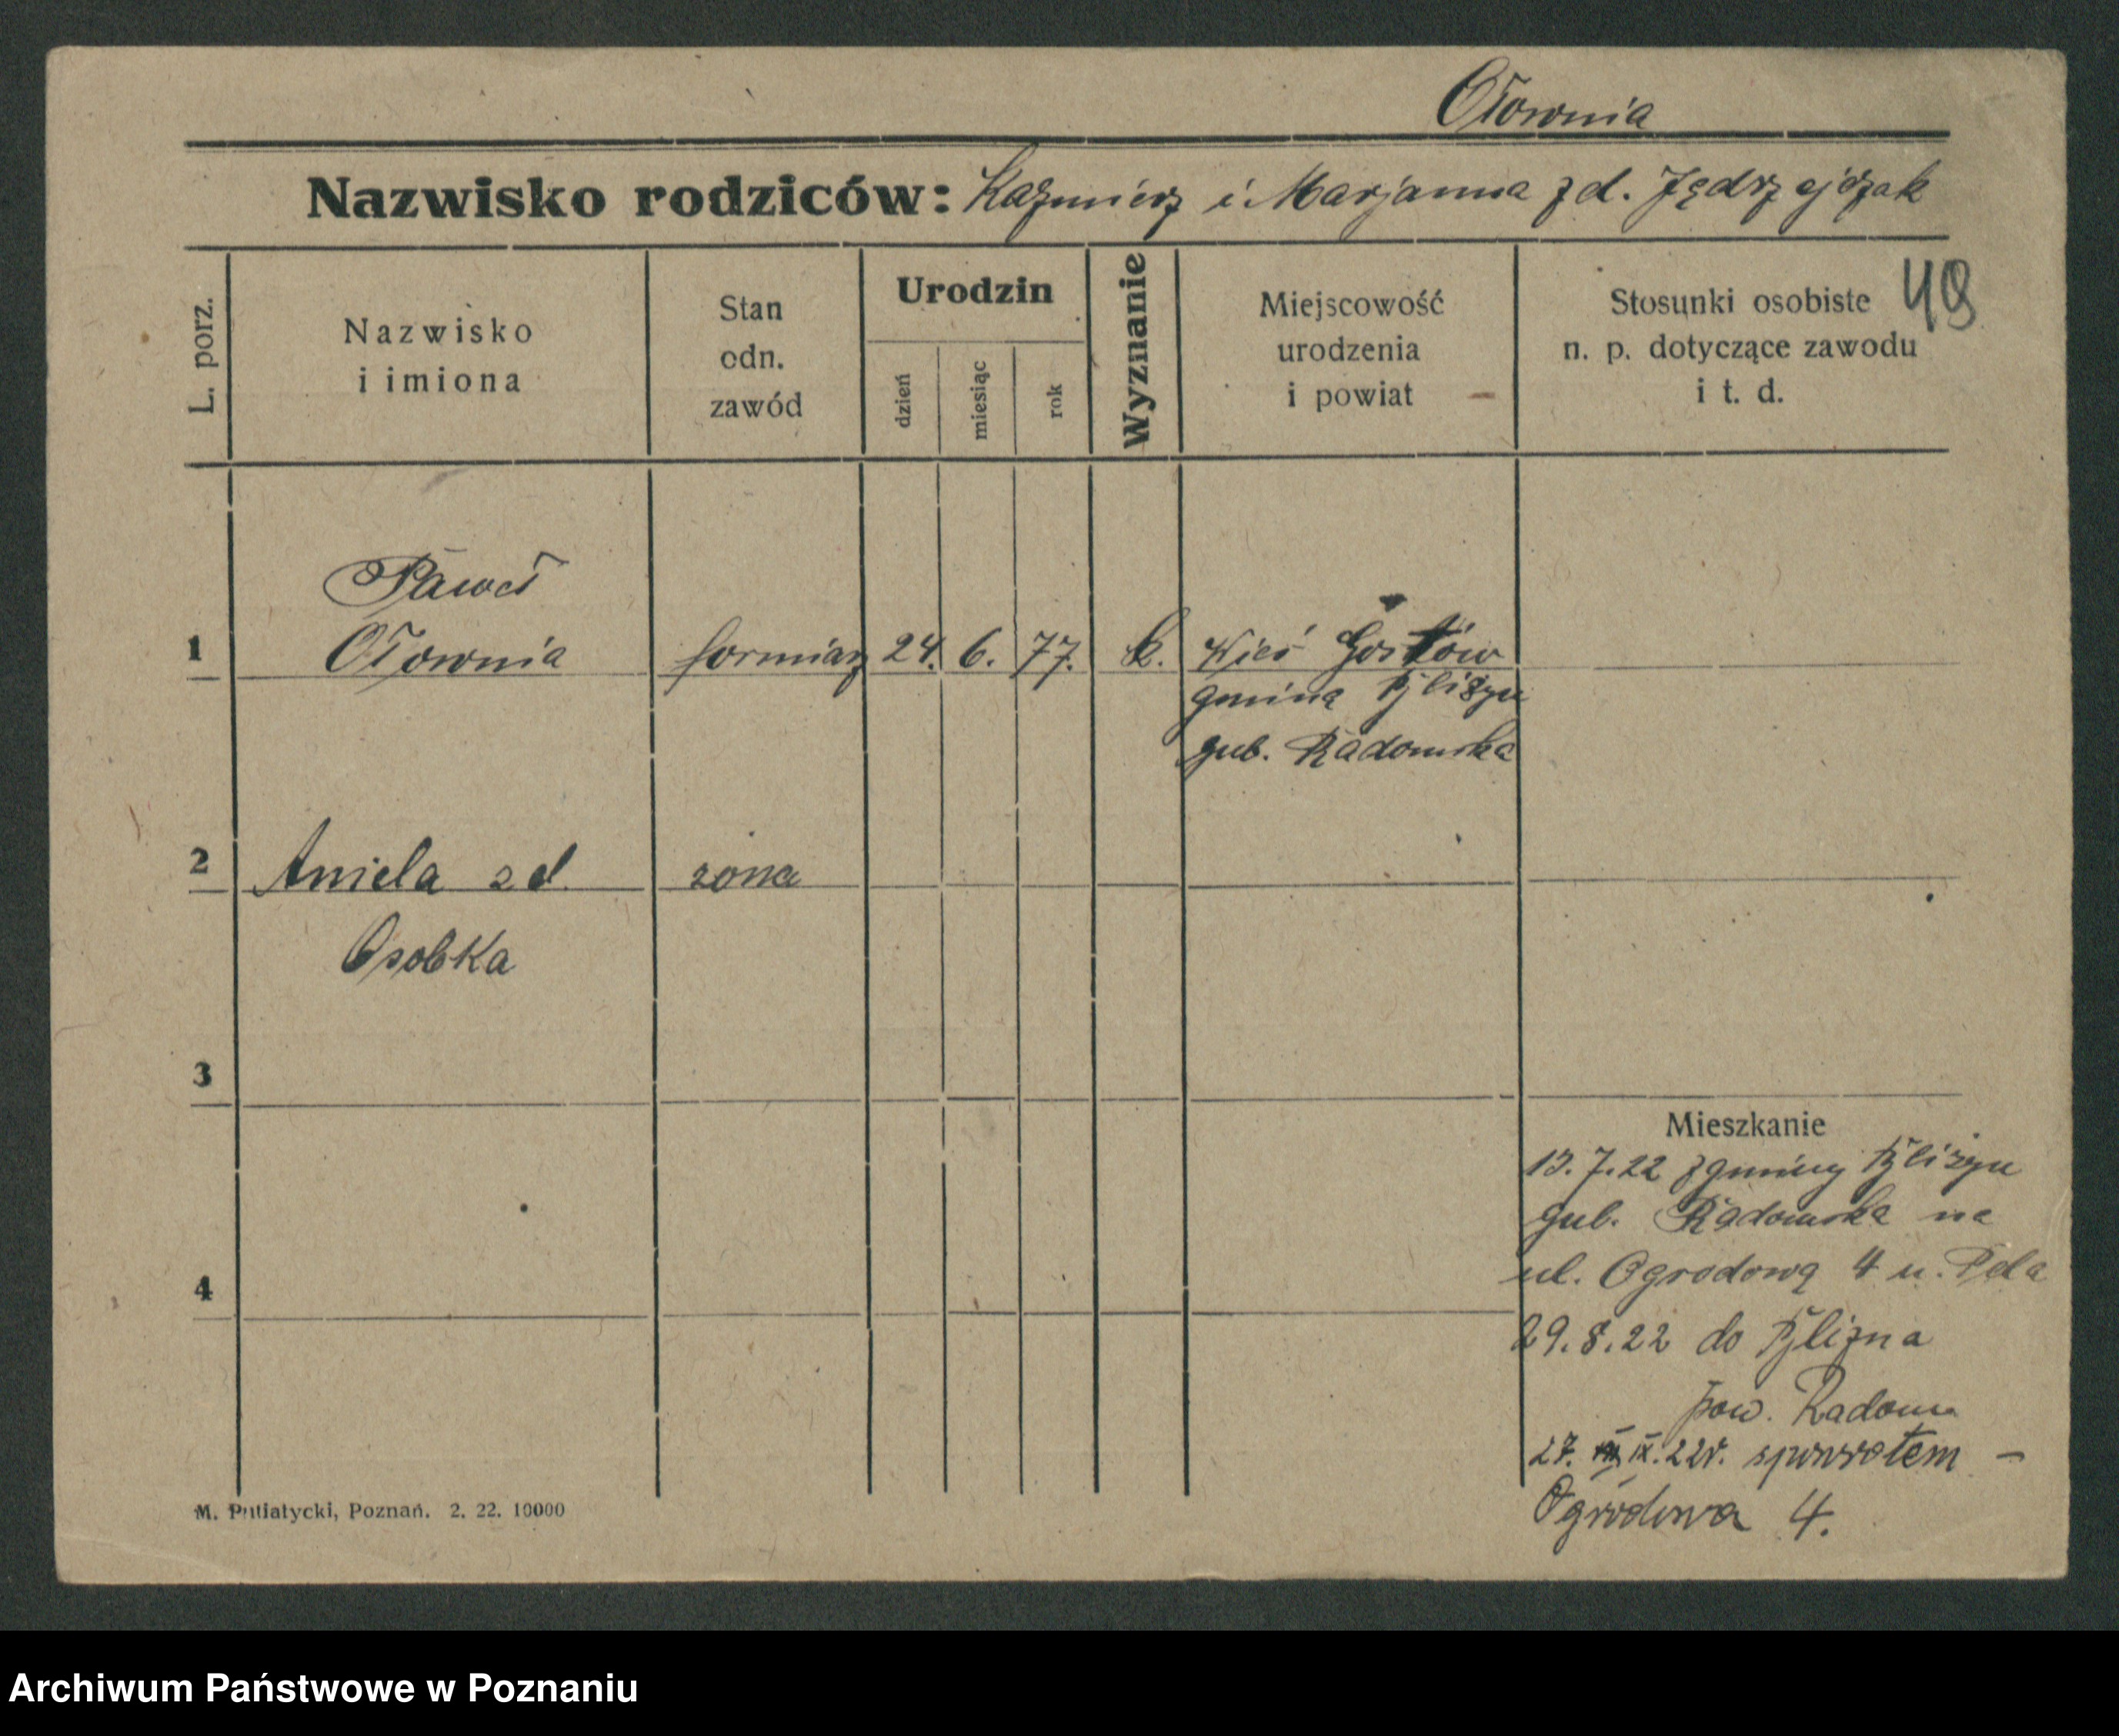 Ołownia
Nazwisko rodziców: Kazmierz i Marjanna z d. Jędrzejczak
L. porz.
Nazwisko
i imiona
Stan
odn.
zawód
Urodzin
dzień
miesiąc
rok
Wyznanie
Miejscowość
urodzenia
i powiat
Stosunki osobiste
n. p. dotyczące zawodu
i t. d.
49
Paweł
1 Ołownia formiarz 24. 6. 77. k. Wieś Gostów
gmina Bliżyn
gub. Radomska
2 Aniela z d. żona
Osobka
3
4
Mieszkanie
13.7.22 z gminy Bliżyn
gub. Radomska na
ul. Ogrodową 4 u. Pela
29.8.22 do Blizna
pow. Radom
27. IX. 22r. spowrotem –
Ogrodowa 4.
M. Putiatycki, Poznań. 2. 22. 10000
Archiwum Państwowe w Poznaniu